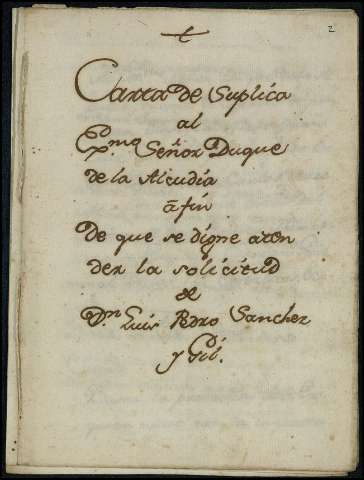 2
Carta de Suplica
al
Exmo. Señor Duque
de la Alcudia
a fin
De que se digne aten
der la solicitud
de
Dn. Luis Pedro Sanchez
y Gil.